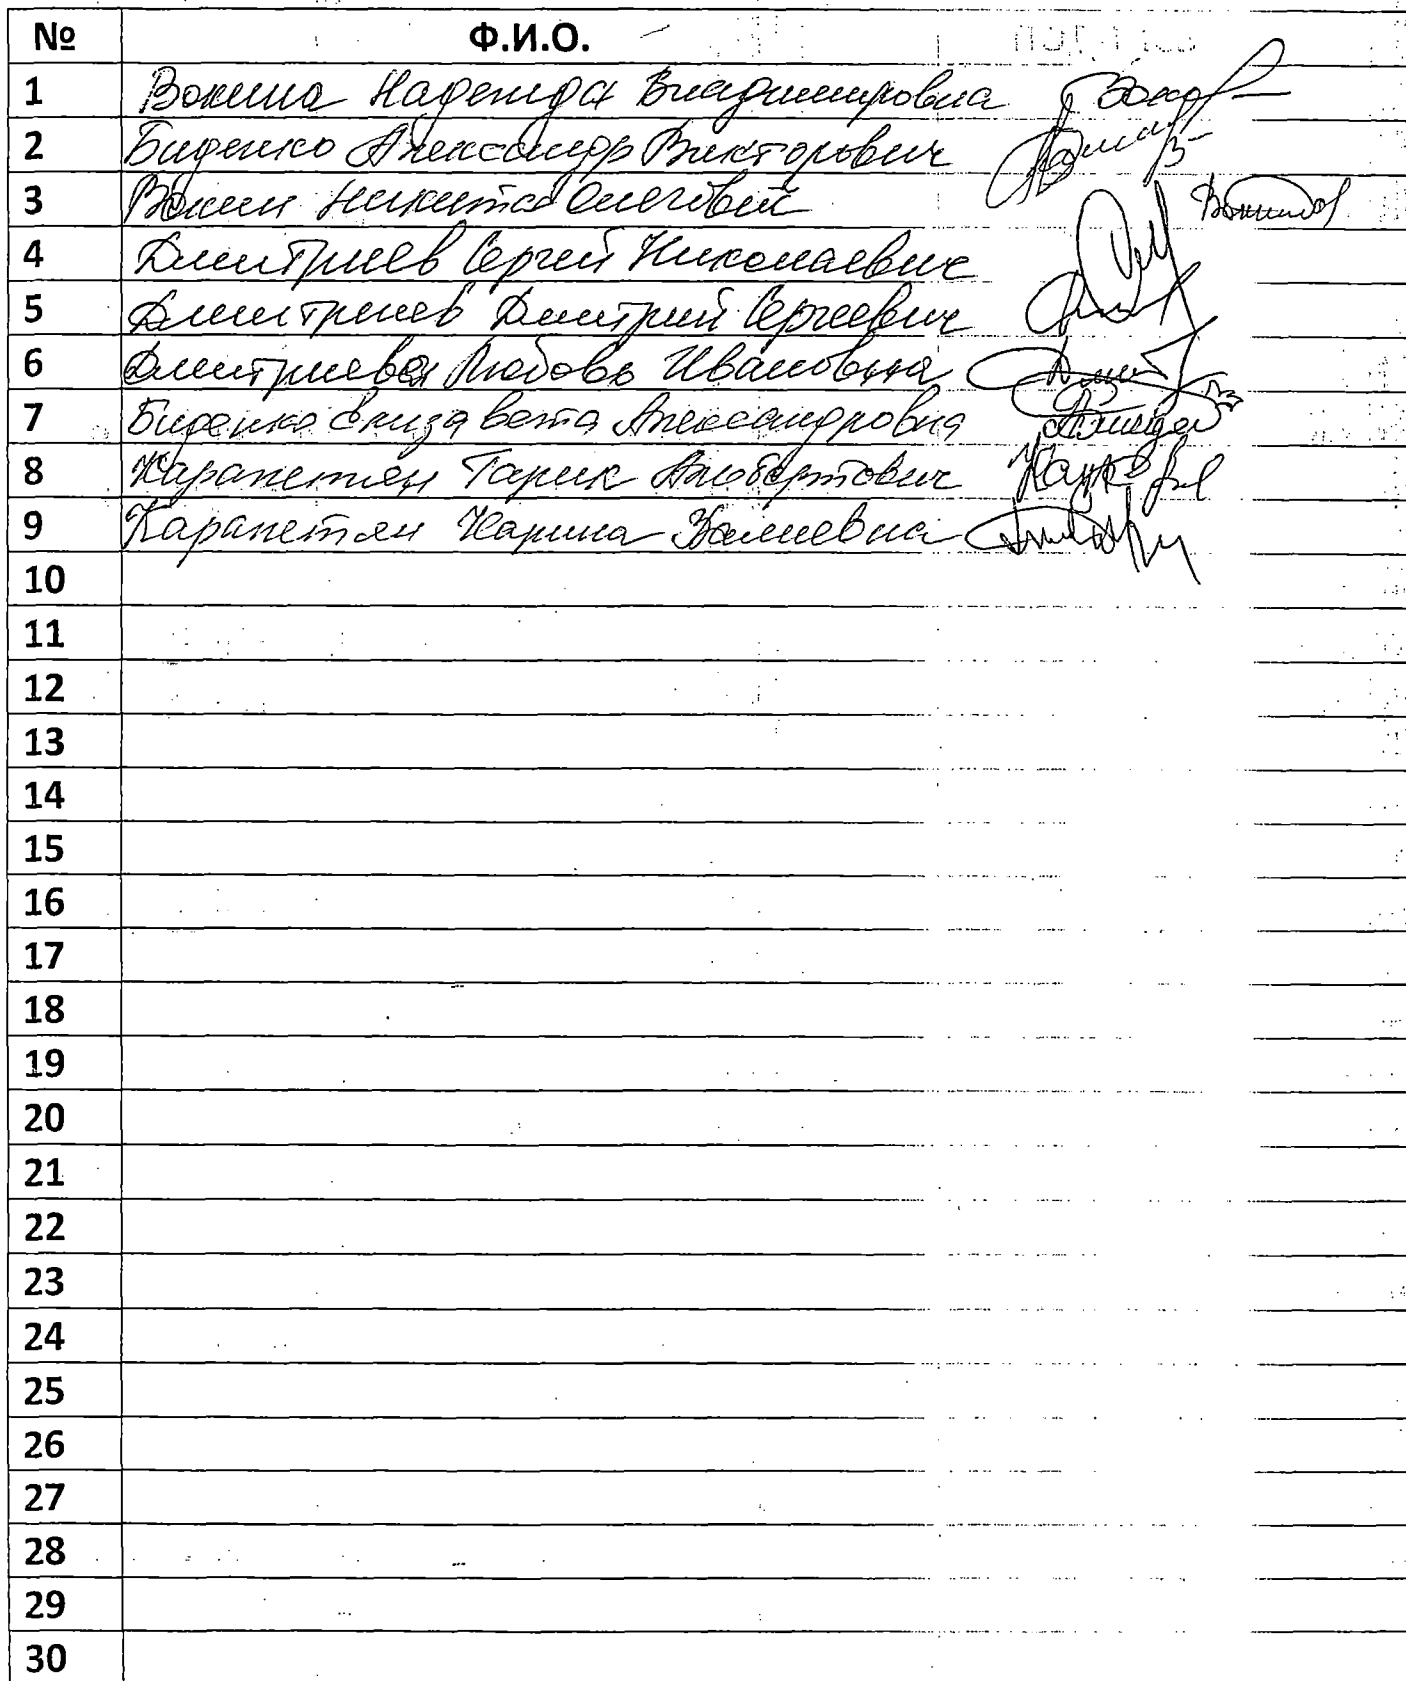 № Ф.И.О.
1 Вокина Надежда Владимировна
2 Биденко Александр Викторович
3 Вокин Никита Олегович
4 Дмитриев Сергей Николаевич
5 Дмитриев Дмитрий Сергеевич
6 Дмитриева Любовь Ивановна
7 Биденко Елизавета Александровна
8 Карапетян Гарик Альбертович
9 Карапетян Карина
10
11
12
13
14
15
16
17
18
19
20
21
22
23
24
25
26
27
28
29
30